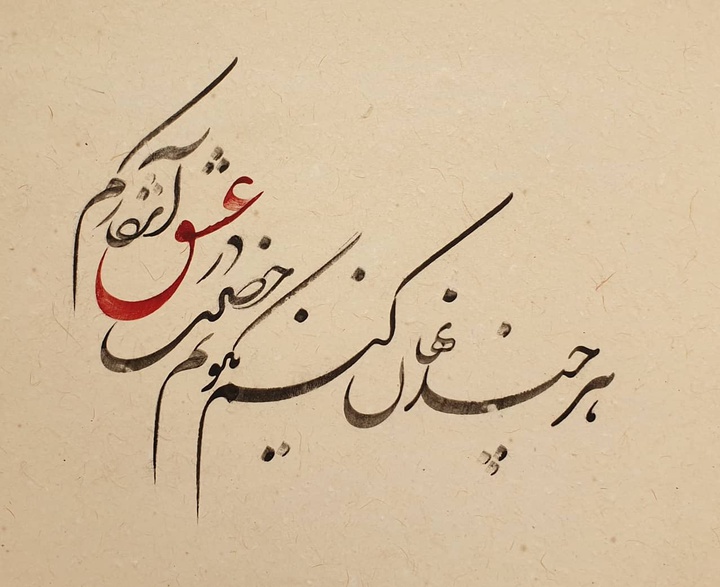 هر چند نهان کنیم
خصلت در عشق آشکارم